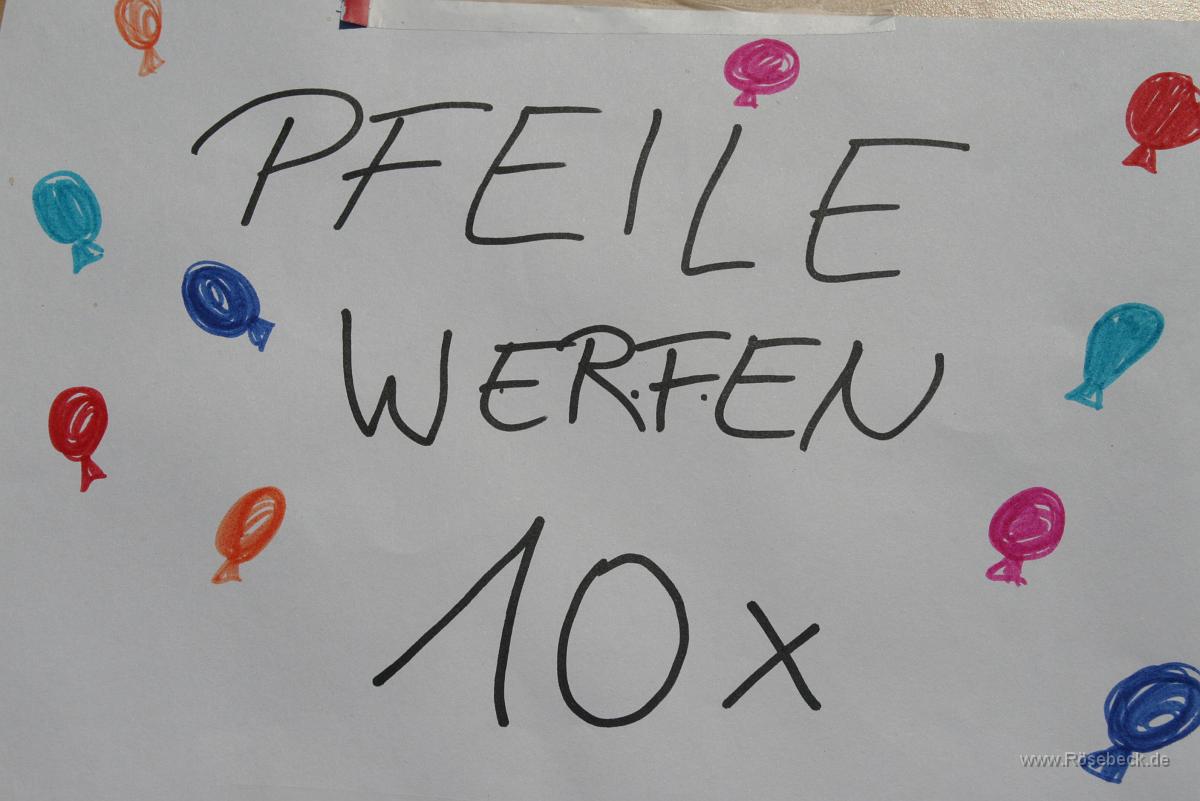 PFEILE
WERFEN
10x
www.Rösebeck.de